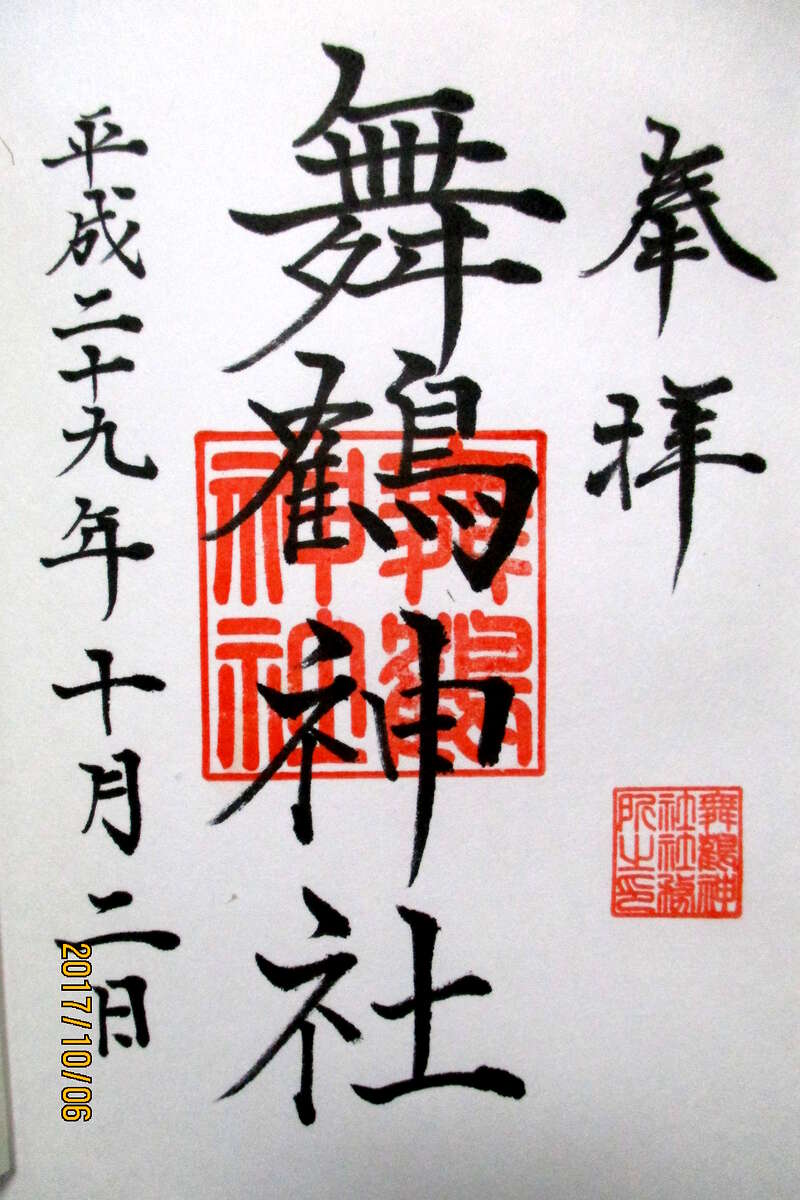 奉拝
舞鶴神社
平成二十九年十月二日
舞鶴
神社
舞鶴神
社社務
所之印
2017/10/06